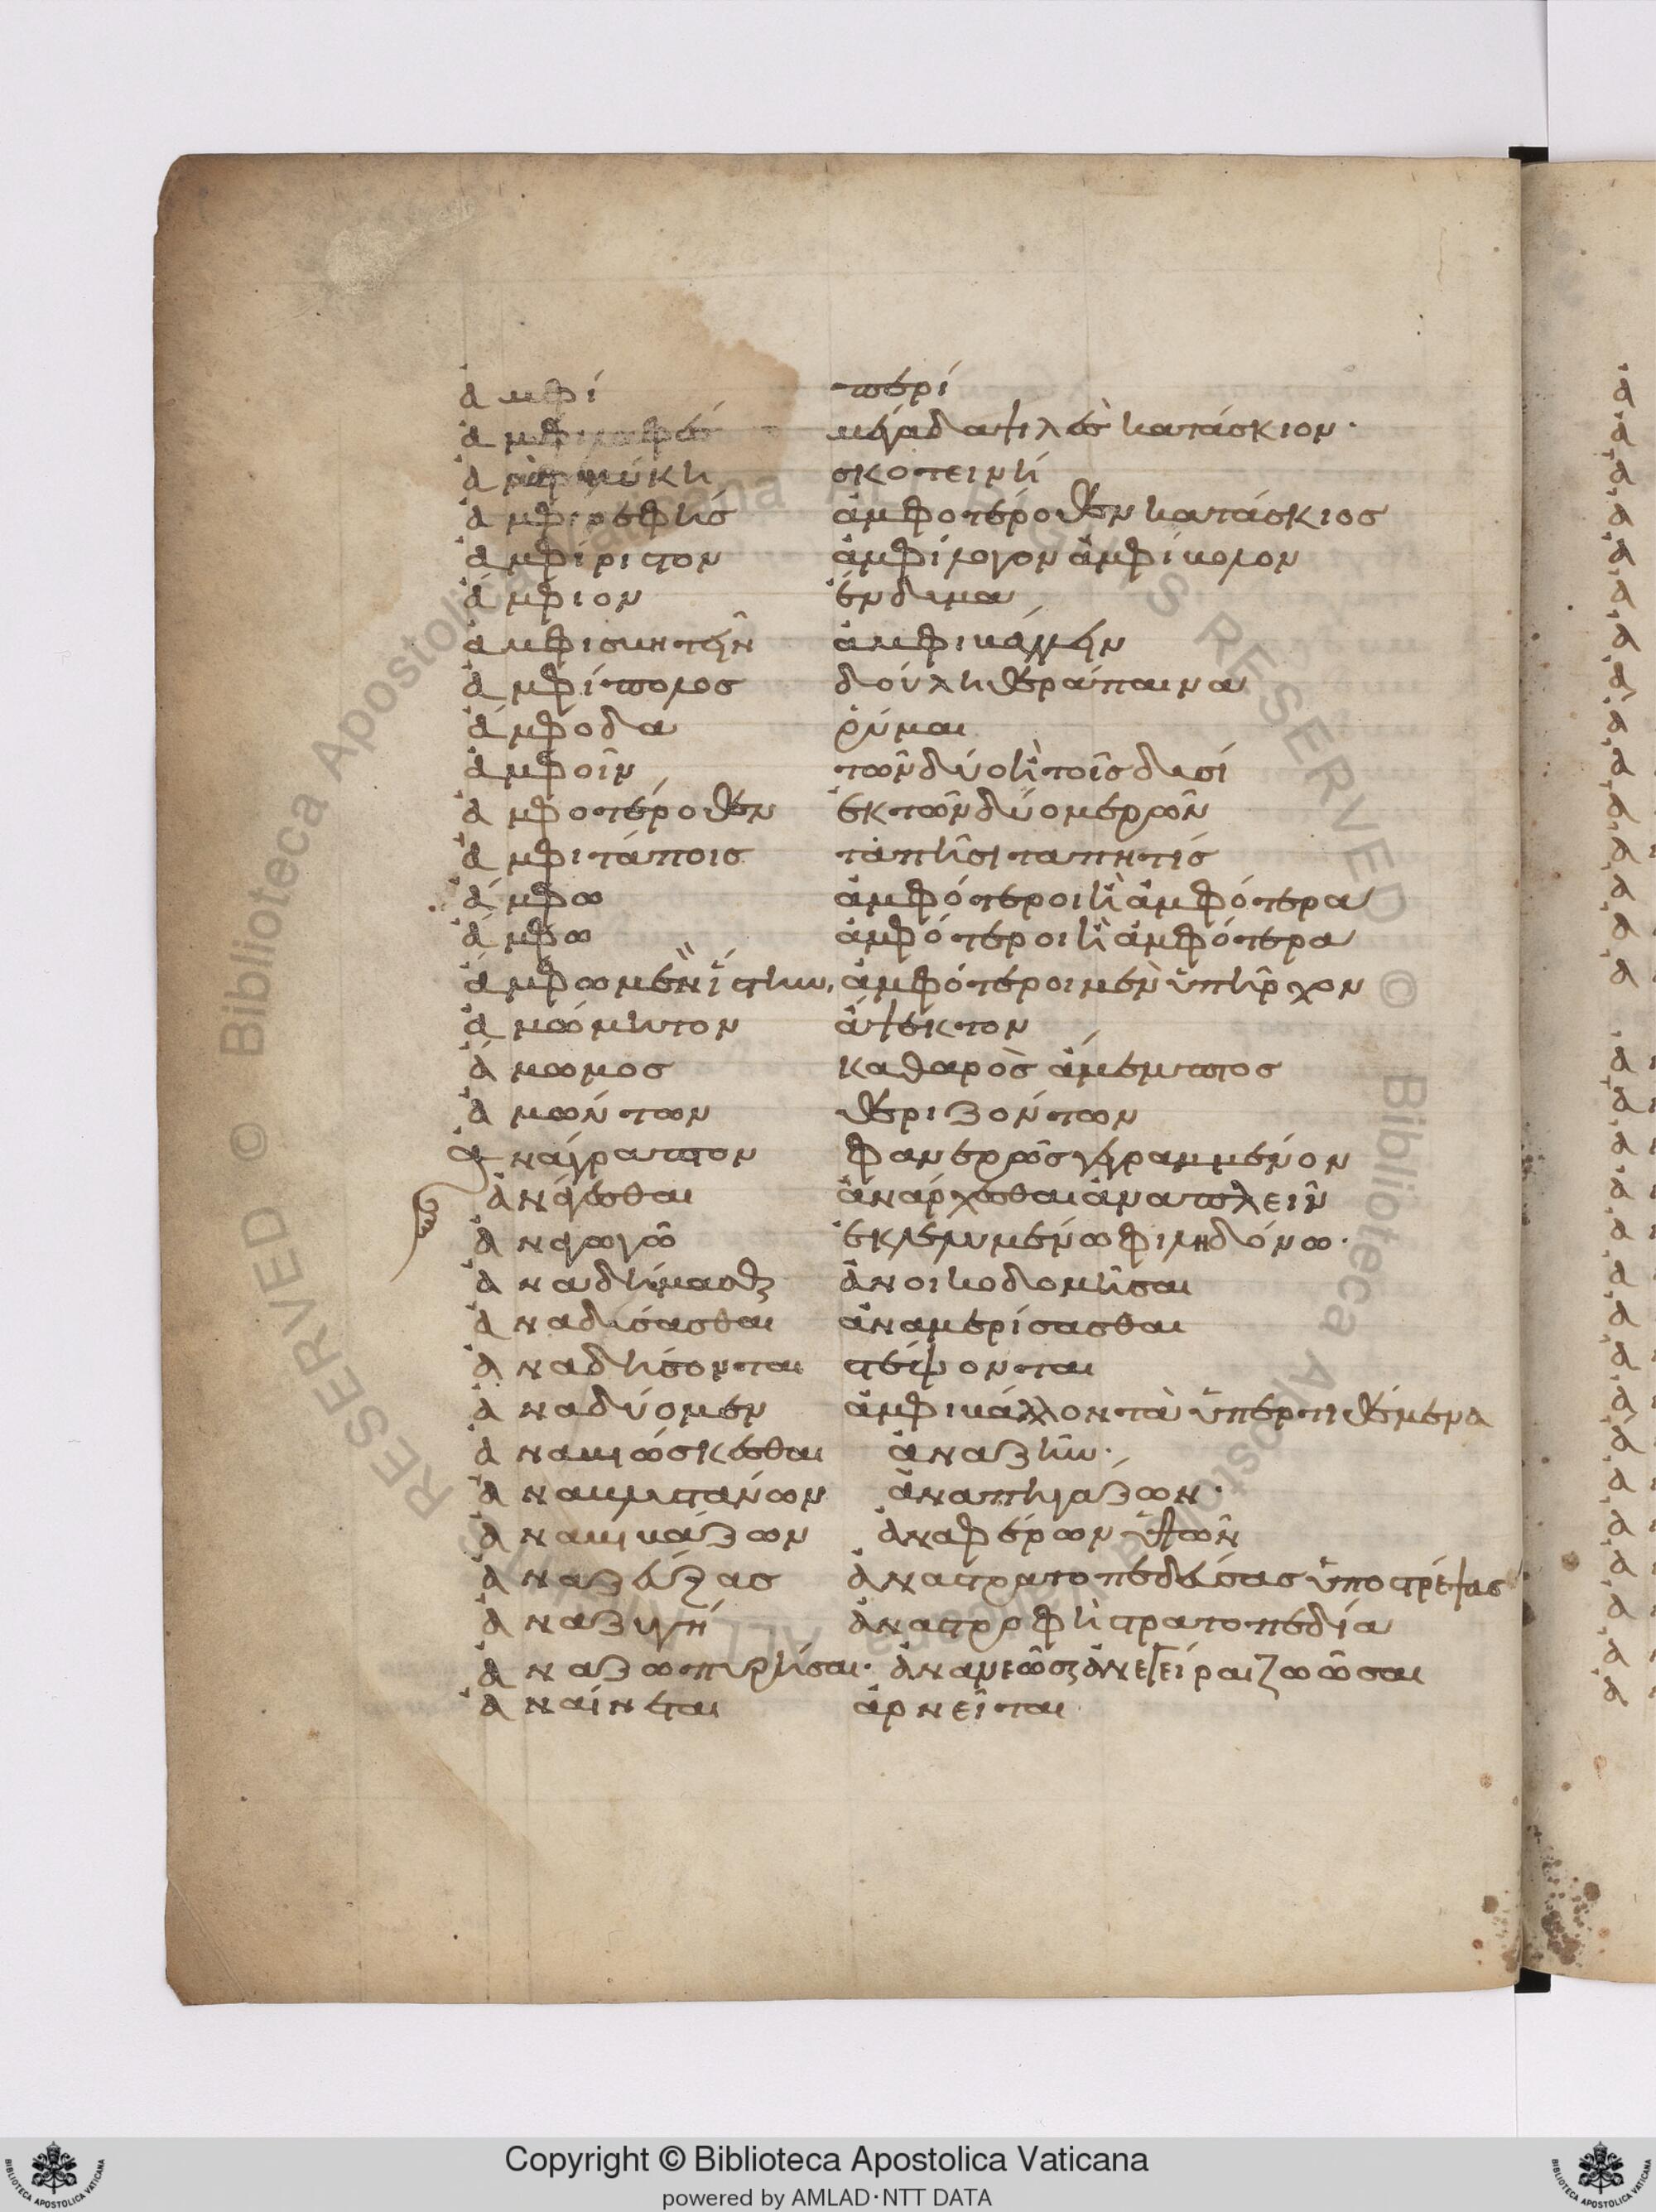 ἀμφί περί
ἀμφι μέγα δαψιλὲς κατάσκιον·
σκοτεινή
ἀμφιρεφής ἀμφοτέροθεν κατάσκιος
ἀμφίριστον ἀμφίλογον ἀμφίβολον
ἄμφιον ἔνδυμα
ἀμφισβητεῖν ἀμφιβάλλειν
ἀμφίπολος δούλη θεράπαινα
ἄμφοδα ῥύμαι
ἀμφοῖν τῶν δύο ἢ τοῖς δυσί
ἀμφοτέροθεν ἐκ τῶν δύο μερῶν
ἀμφιτάποις τάπησι ταπητίς
ἄμφω ἀμφότεροι ἢ ἀμφότερα
ἄμφω ἀμφότεροι ἢ ἀμφότερα
ἄμφω μὲν ἴστην, ἀμφότεροι μὲν ὑπῆρχον
ἀμώμητον ἄψεκτον
ἄμωμος καθαρὸς ἄμεμπτος
ἀμώντων θεριζόντων
ἀνάγραπτον φανερῶς γεγραμμένον
ἀνάγεσθαι ἀνάρχεσθαι ἀναπλεῖν
ἀναγώγω ἐκλελυμένω φιληδόνω·
ἀναδείμασθαι ἀνοικοδομῆσαι
ἀναδάσασθαι ἀναμερίσασθαι
ἀναδήσονται στέψονται
ἀναδύομεν ἀμφιβάλλοντα ὑπερτιθέμενα
ἀναβιώσκεσθαι ἀναζῆν·
ἀναβλυστάνων ἀναπηγάζων·
ἀναβιβάζων ἀναφέρων ὑψῶν
ἀναζεύξας ἀναστρατοπεδεύσας ὑποστρέψας
ἀναζυγή ἀναστροφὴ στρατοπεδία
ἀναζωπυρῆσαι· ἀνανεῶσαι ἀνεγεῖραι ζωῶσαι
ἀναίνεται ἀρνεῖται
Copyright © Biblioteca Apostolica Vaticana
powered by AMLAD·NTT DATA